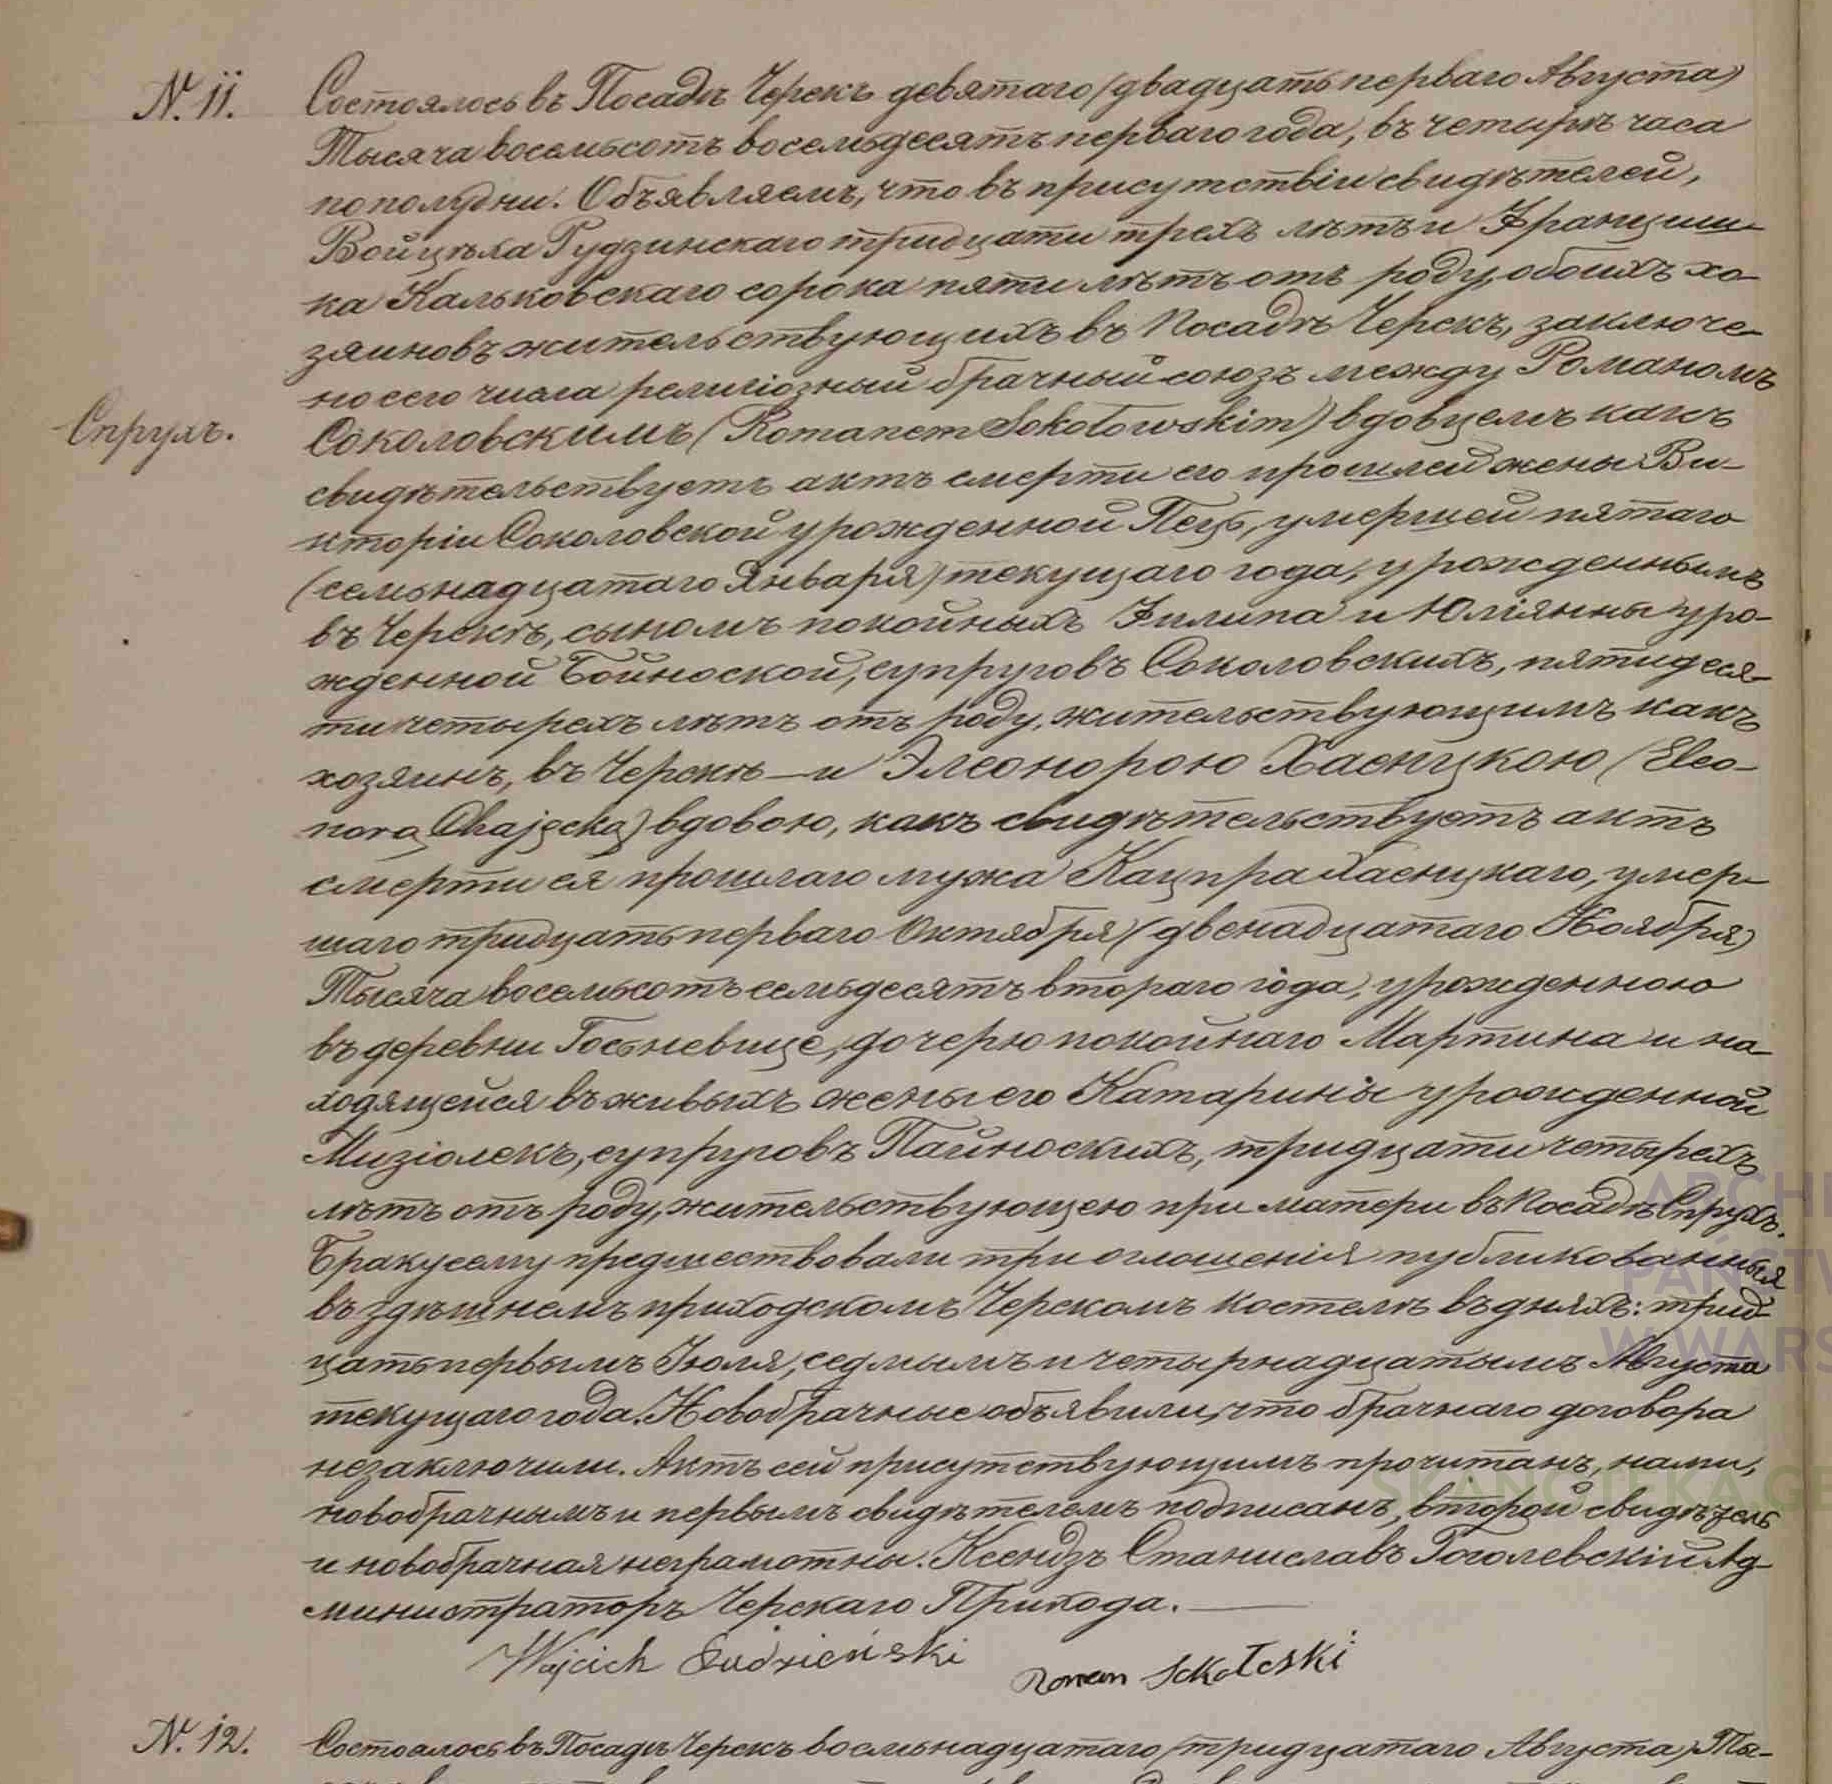 N. 11. Состоялось въ Посадѣ Черскъ девятаго (двадцать перваго Августа)
Тысяча восемьсотъ восемьдесятъ перваго года, въ четырѣ часа
пополудни. Объявляемъ, что въ присутствіи свидѣтелей,
Войцѣха Гудзинскаго тридцати трехъ лѣтъ и Францишка
ка Кальковскаго сорока пяти лѣтъ отъ роду, обоихъ хо-
зяиновъ жительствующихъ въ Посадѣ Черскъ, заключе-
но сего числа религіозный брачный союзъ между Романомъ
Спрухъ. Соколовскимъ (Romanem Sokołowskim) вдовцемъ какъ
свидѣтельствуетъ актъ смерти его прошлей жены Ви-
кторіи Соколовской урожденной Пецъ, умершей пятаго
(семьнадцатаго Января) текущаго года, урожденнымъ
въ Черскѣ, сыномъ покойныхъ Филипа и Юліянны уро-
жденной Бойноской, супруговъ Соколовскихъ, пятидеся-
ти четырехъ лѣтъ отъ роду, жительствующимъ какъ
хозяинъ, въ Черскѣ — и Элеонорою Хаенцкою (Eleo-
norą Chajęcką) вдовою, какъ свидѣтельствуетъ актъ
смерти ея прошлаго мужа Кацпра Хаенцкаго, умер-
шаго тридцать перваго Октября (двенадцатаго Ноября)
Тысяча восемьсотъ семьдесятъ втораго года, урожденною
въ деревни Госьневице, дочерю покойнаго Мартина и на-
ходящейся въ живыхъ жены его Катарины урожденной
Мизіолекъ, супруговъ Пайноскихъ, тридцати четырехъ
лѣтъ отъ роду, жительствующею при матери въ Посадѣ Спрухъ.
Браку сему предшествовали три оглошенія публикованныя
въ здѣшнемъ приходскомъ Черскомъ костелѣ въ дняхъ: трид-
цать первымъ Іюля, седмымъ и четырнадцатымъ Августа
текущаго года. Новобрачные объявили, что брачнаго договора
незаключили. Актъ сей присутствующимъ прочитанъ, нами,
новобрачнымъ и первымъ свидѣтелемъ подписанъ, второй свидѣтель
и новобрачная неграмотны. Ксендзъ Станиславъ Гоголевскій Ад-
министраторъ Черскаго Прихода. —
Wojcich Gudzieński Roman Sokołoski
N. 12. Состоялось въ Посадѣ Черскъ восемьнадцатаго (тридцатаго Августа) Ты-
ARCHI
PAŃSTW
W WARS
SKANOTEKA.GE